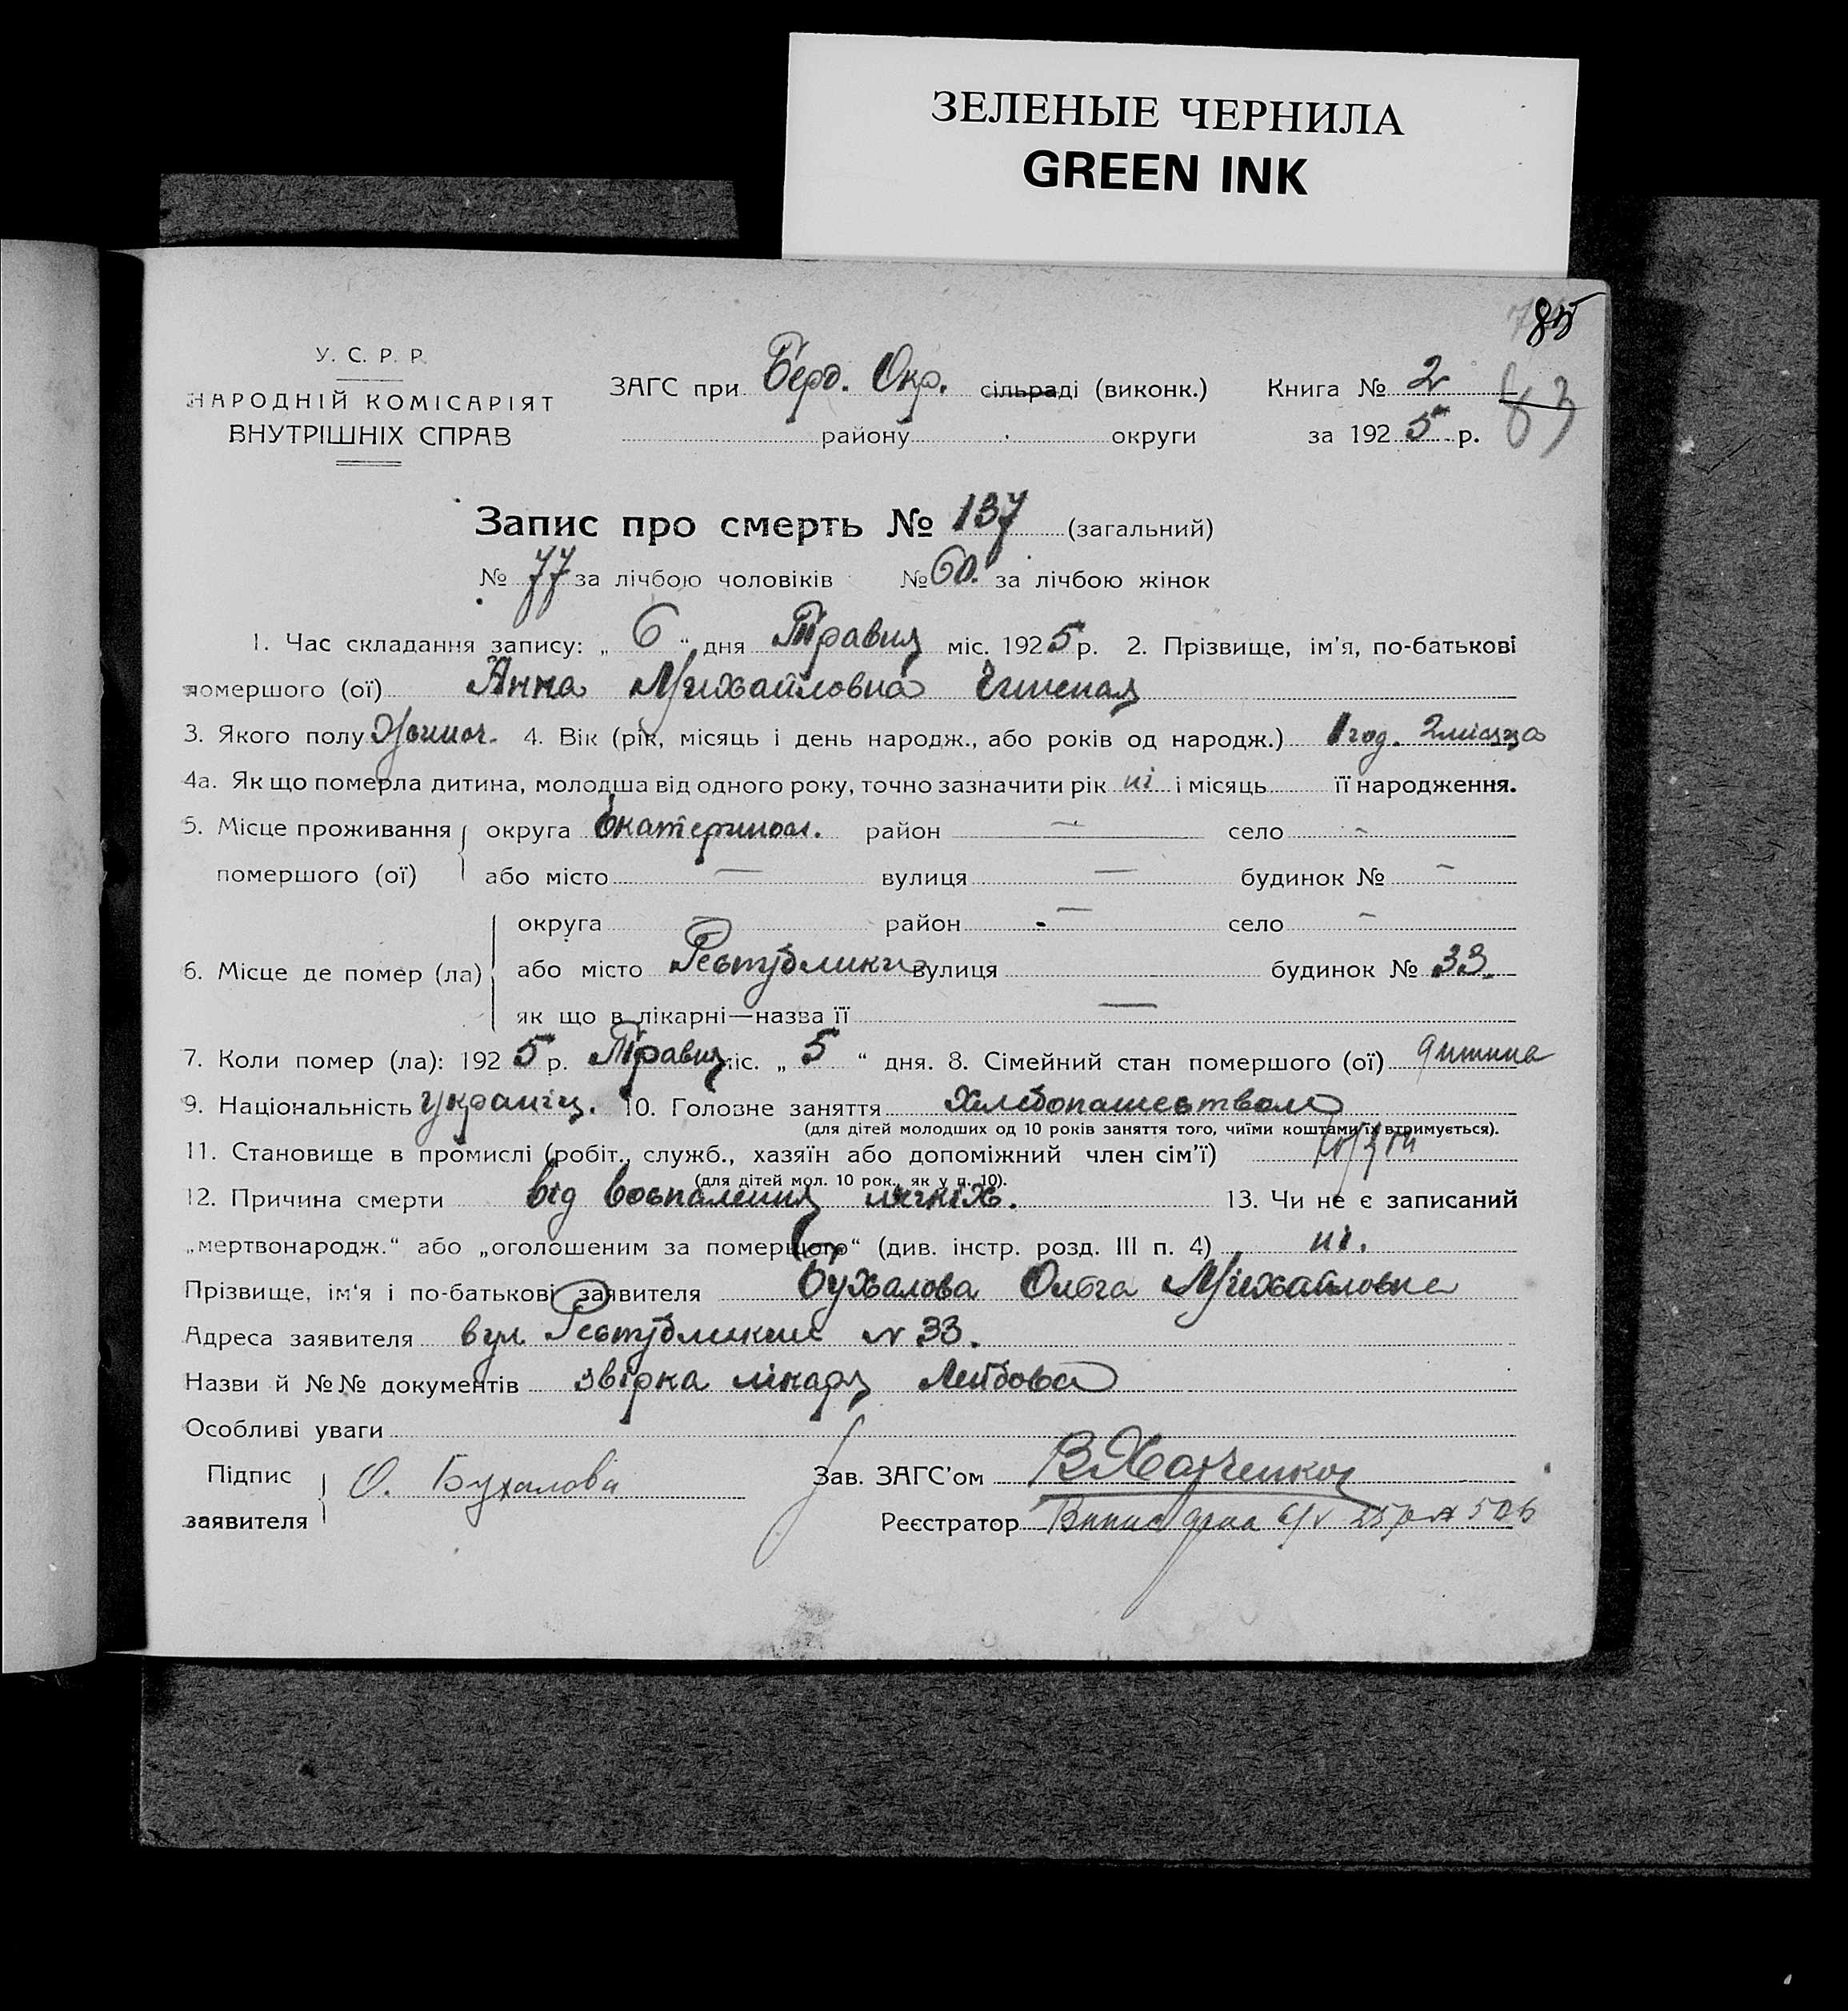 ЗЕЛЕНЫЕ ЧЕРНИЛА
GREEN INK
85
83
У. С. Р. Р.
НАРОДНІЙ КОМІСАРІЯТ
ВНУТРІШНІХ СПРАВ
ЗАГС при Берд. Окр. сільраді (виконк.) Книга № 2
району округи за 1925 р.
Запис про смерть № 137 (загальний)
№ 77 за лічбою чоловіків № 60. за лічбою жінок
1. Час складання запису: „ 6 “ дня Травня міс. 1925 р. 2. Прізвище, ім'я, по-батькові
помершого (ої) Анна Михайловна
3. Якого полу Жіноч. 4. Вік (рік, місяць і день народж., або років од народж.) 1 год. 2 місяця
4а. Як що померла дитина, молодша від одного року, точно зазначити рік ні і місяць її народження.
5. Місце проживання округа Екатеринос. район — село -
помершого (ої) або місто — вулиця — будинок № -
округа — район — село -
6. Місце де помер (ла) або місто Республики вулиця будинок № 33.
як що в лікарні—назва її —
7. Коли помер (ла): 1925 р. Травня міс. „ 5 “ дня. 8. Сімейний стан помершого (ої) дитина
9. Національність україн. 10. Головне заняття Хлебопашеством
(для дітей молодших од 10 років заняття того, чиїми коштами їх втримується).
11. Становище в промислі (робіт., служб., хазяїн або допоміжний член сім'ї)
(для дітей мол. 10 рок., як у п. 10).
12. Причина смерти від воспаления легкіх. 13. Чи не є записаний
„мертвонародж.“ або „оголошеним за померщого“ (див. інстр. розд. III п. 4) ні.
Прізвище, ім'я і по-батькові заявителя Бухалова Ольга Михайловна
Адреса заявителя вул. Республикии № 33.
Назви й №№ документів звірка лікаря Лейбова
Особливі уваги
Підпис О. Бухалова Зав. ЗАГС'ом В Харченко
заявителя Реєстратор